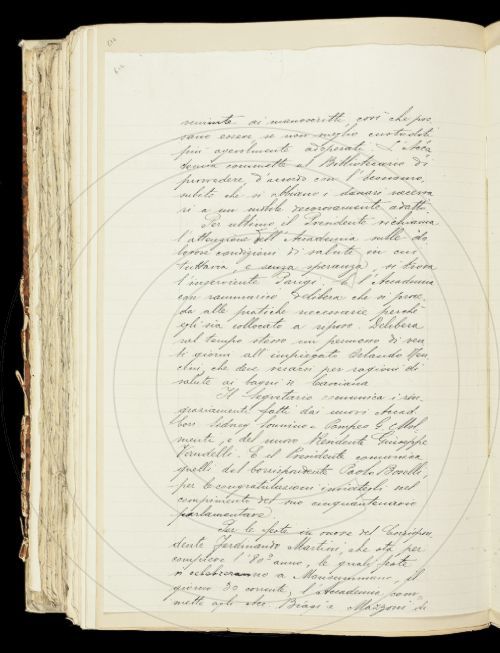 riunite ai manoscritti, così che pos
sano essere se non meglio custoditi
più agevolmente adoperati. L'Acca
demia commette al Bibliotecario di
provvedere d'accordo con l'Economo,
subito che si abbiano i denari necessa
ri a un mobile decorosamente adatto.
Per ultimo il Presidente richiama
l'attenzione dell'Accademia sulle do
lorose condizioni di salute in cui
tuttora, e senza speranza, si trova
l'inserviente Parigi. E l'Accademia
con rammarico delibera che si proce
da alle pratiche necessarie perchè
egli sia collocato a riposo. Delibera
nel tempo stesso un permesso di ven
ti giorni all'impiegato Orlando
che deve recarsi per ragioni di
salute ai bagni di Casciana.
Il Segretario comunica i rin
graziamenti fatti dai nuovi Accad
Sidney Sonnino e Pompeo G. Mol
menti, e del nuovo Giuseppe
Vandelli. E il Presidente comunica
quelli del Corrispondente Paolo Boselli,
per le congratulazioni inviategli nel
compimento del suo cinquantenario
parlamentare.
Per le feste in onore del Corrispon
dente Ferdinando Martini, che sta per
compiere l'80º anno, le quali feste
si celebreranno a Monsummano, il
giorno 30 corrente, l'Accademia com
mette agli Acc. Biagi e Mazzoni di